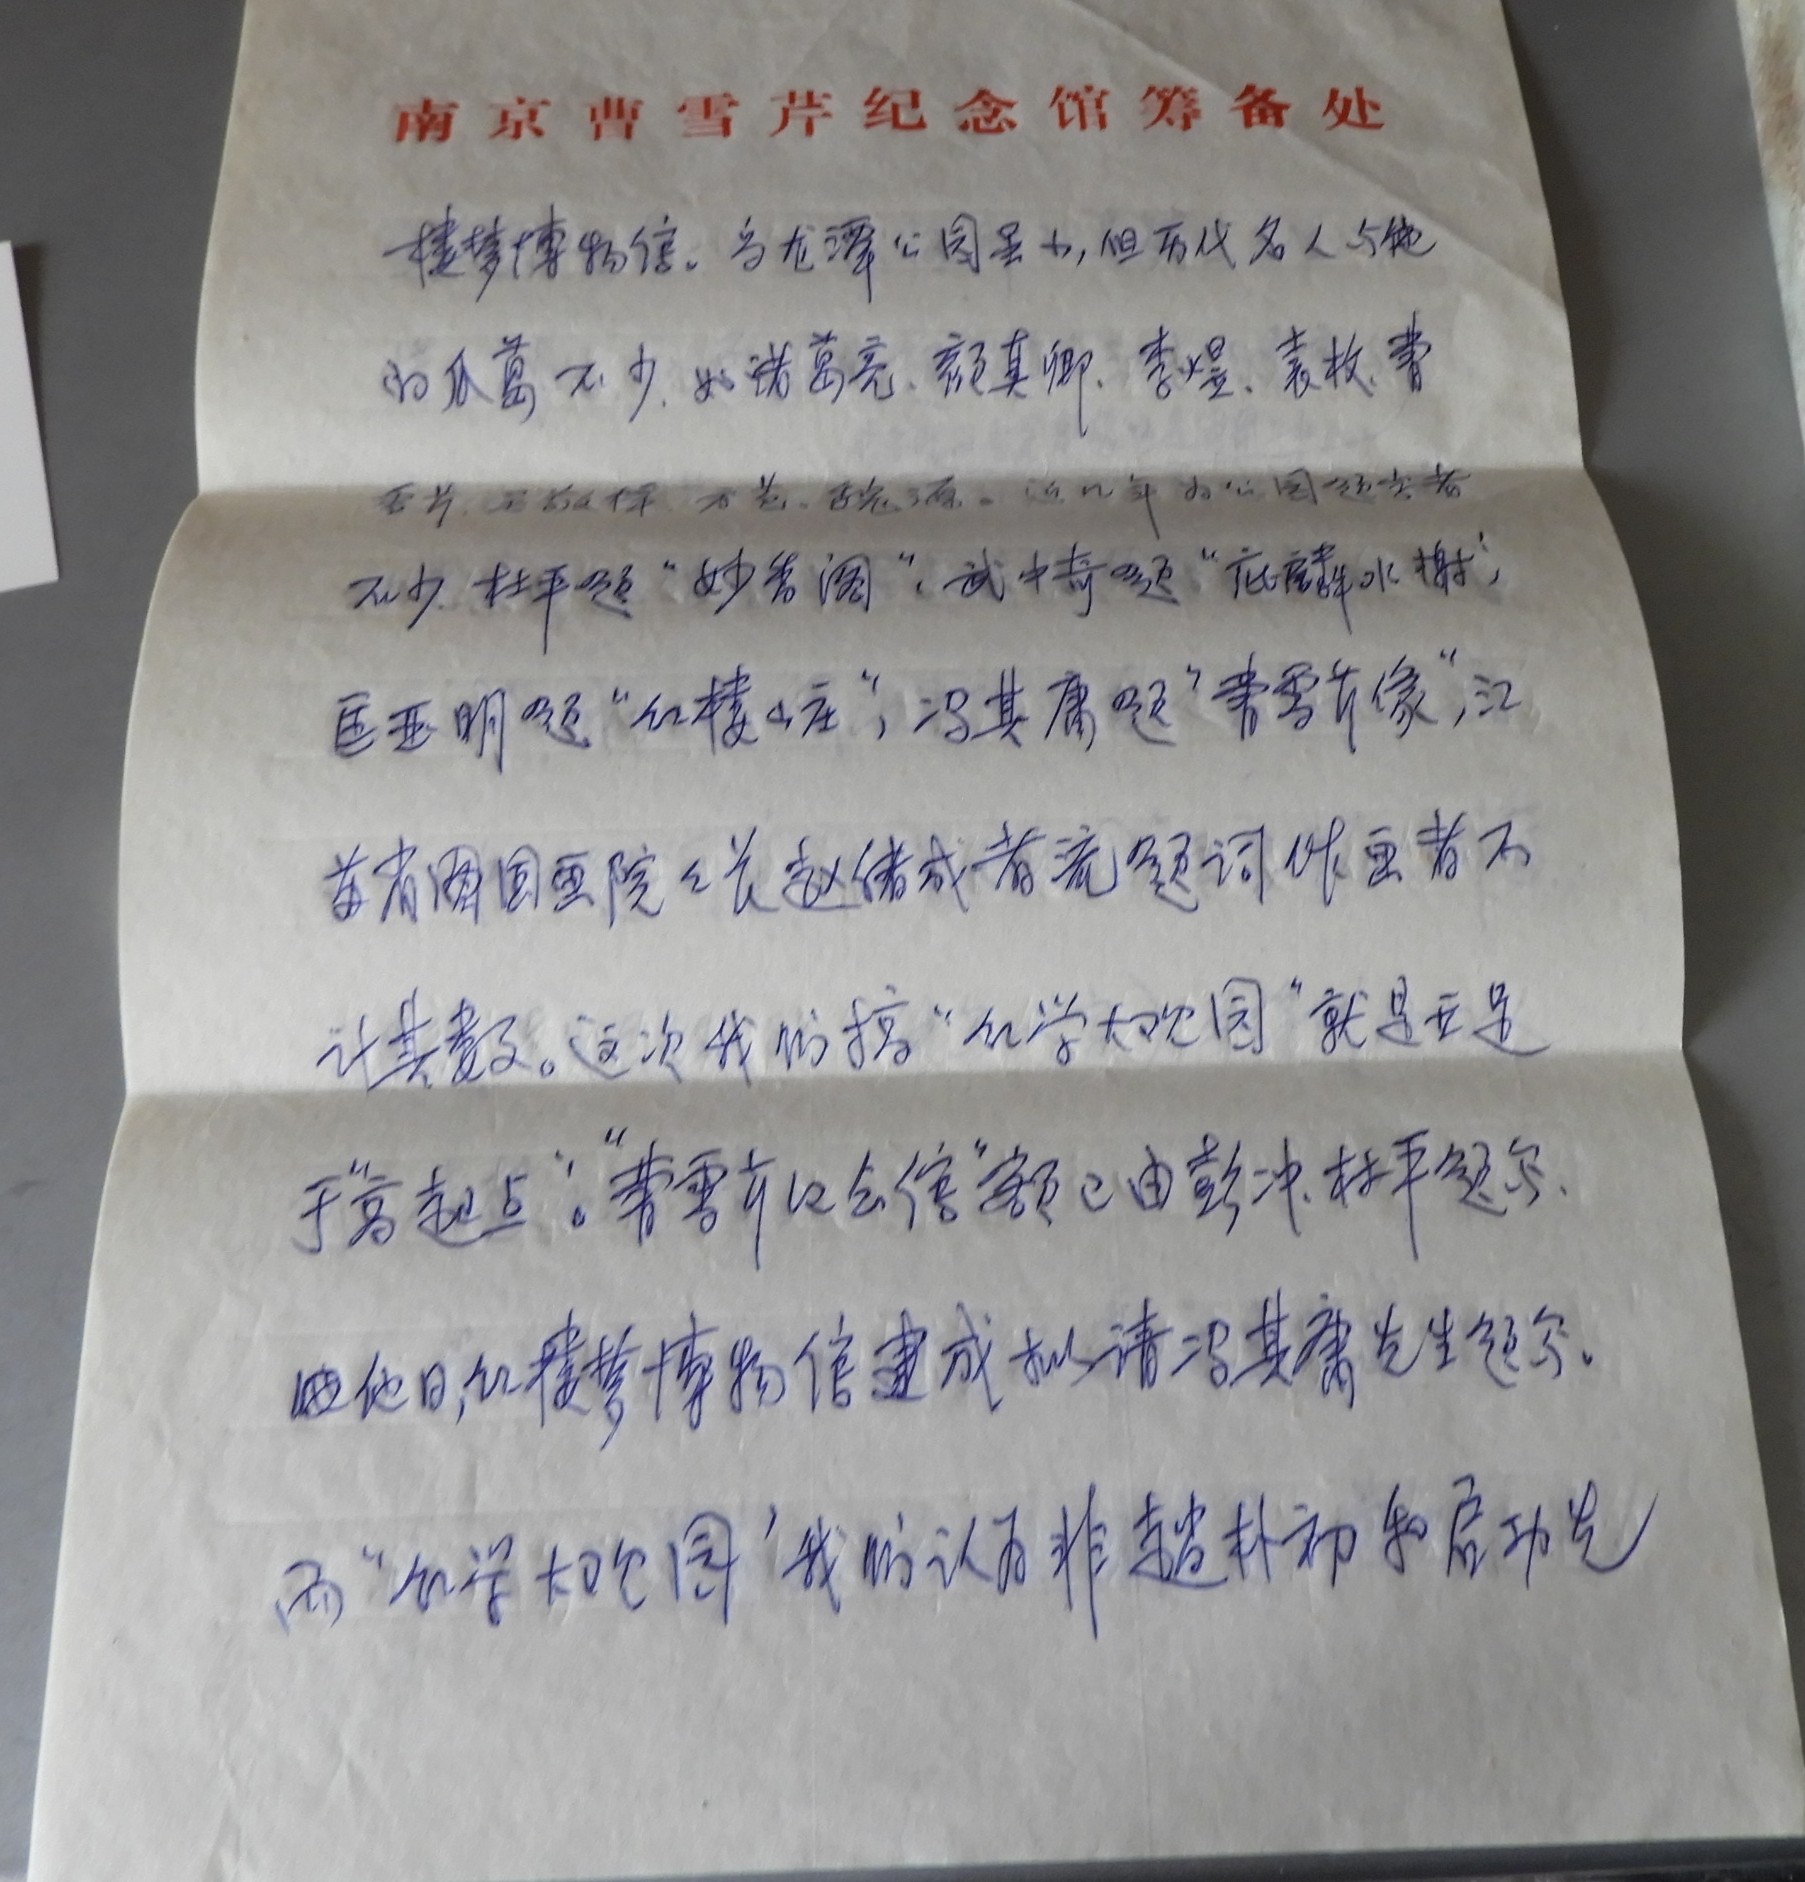 南京曹雪芹纪念馆筹备处
楼梦博物馆。乌龙潭公园虽小,但历代名人与她
的瓜葛不少,如诸葛亮、颜真卿、李煜、袁枚、曹
雪芹、方苞、魏源。近几年为公园题字者
不少,杜平题“妙香阁”,武中奇题“庇麟水榭”,
匡亚明题“红楼山庄”,冯其庸题“曹雪芹像”,江
苏省国画院院长赵绪成者流题词作画者不
计其数。这次我们搞“红学大观园”就是立足
于“高起点”。“曹雪芹纪念馆”额已由彭冲、杜平题字、
他日,红楼梦博物馆建成拟请冯其庸先生题字。
而“红学大观园”我们认为非赵朴初和启功先